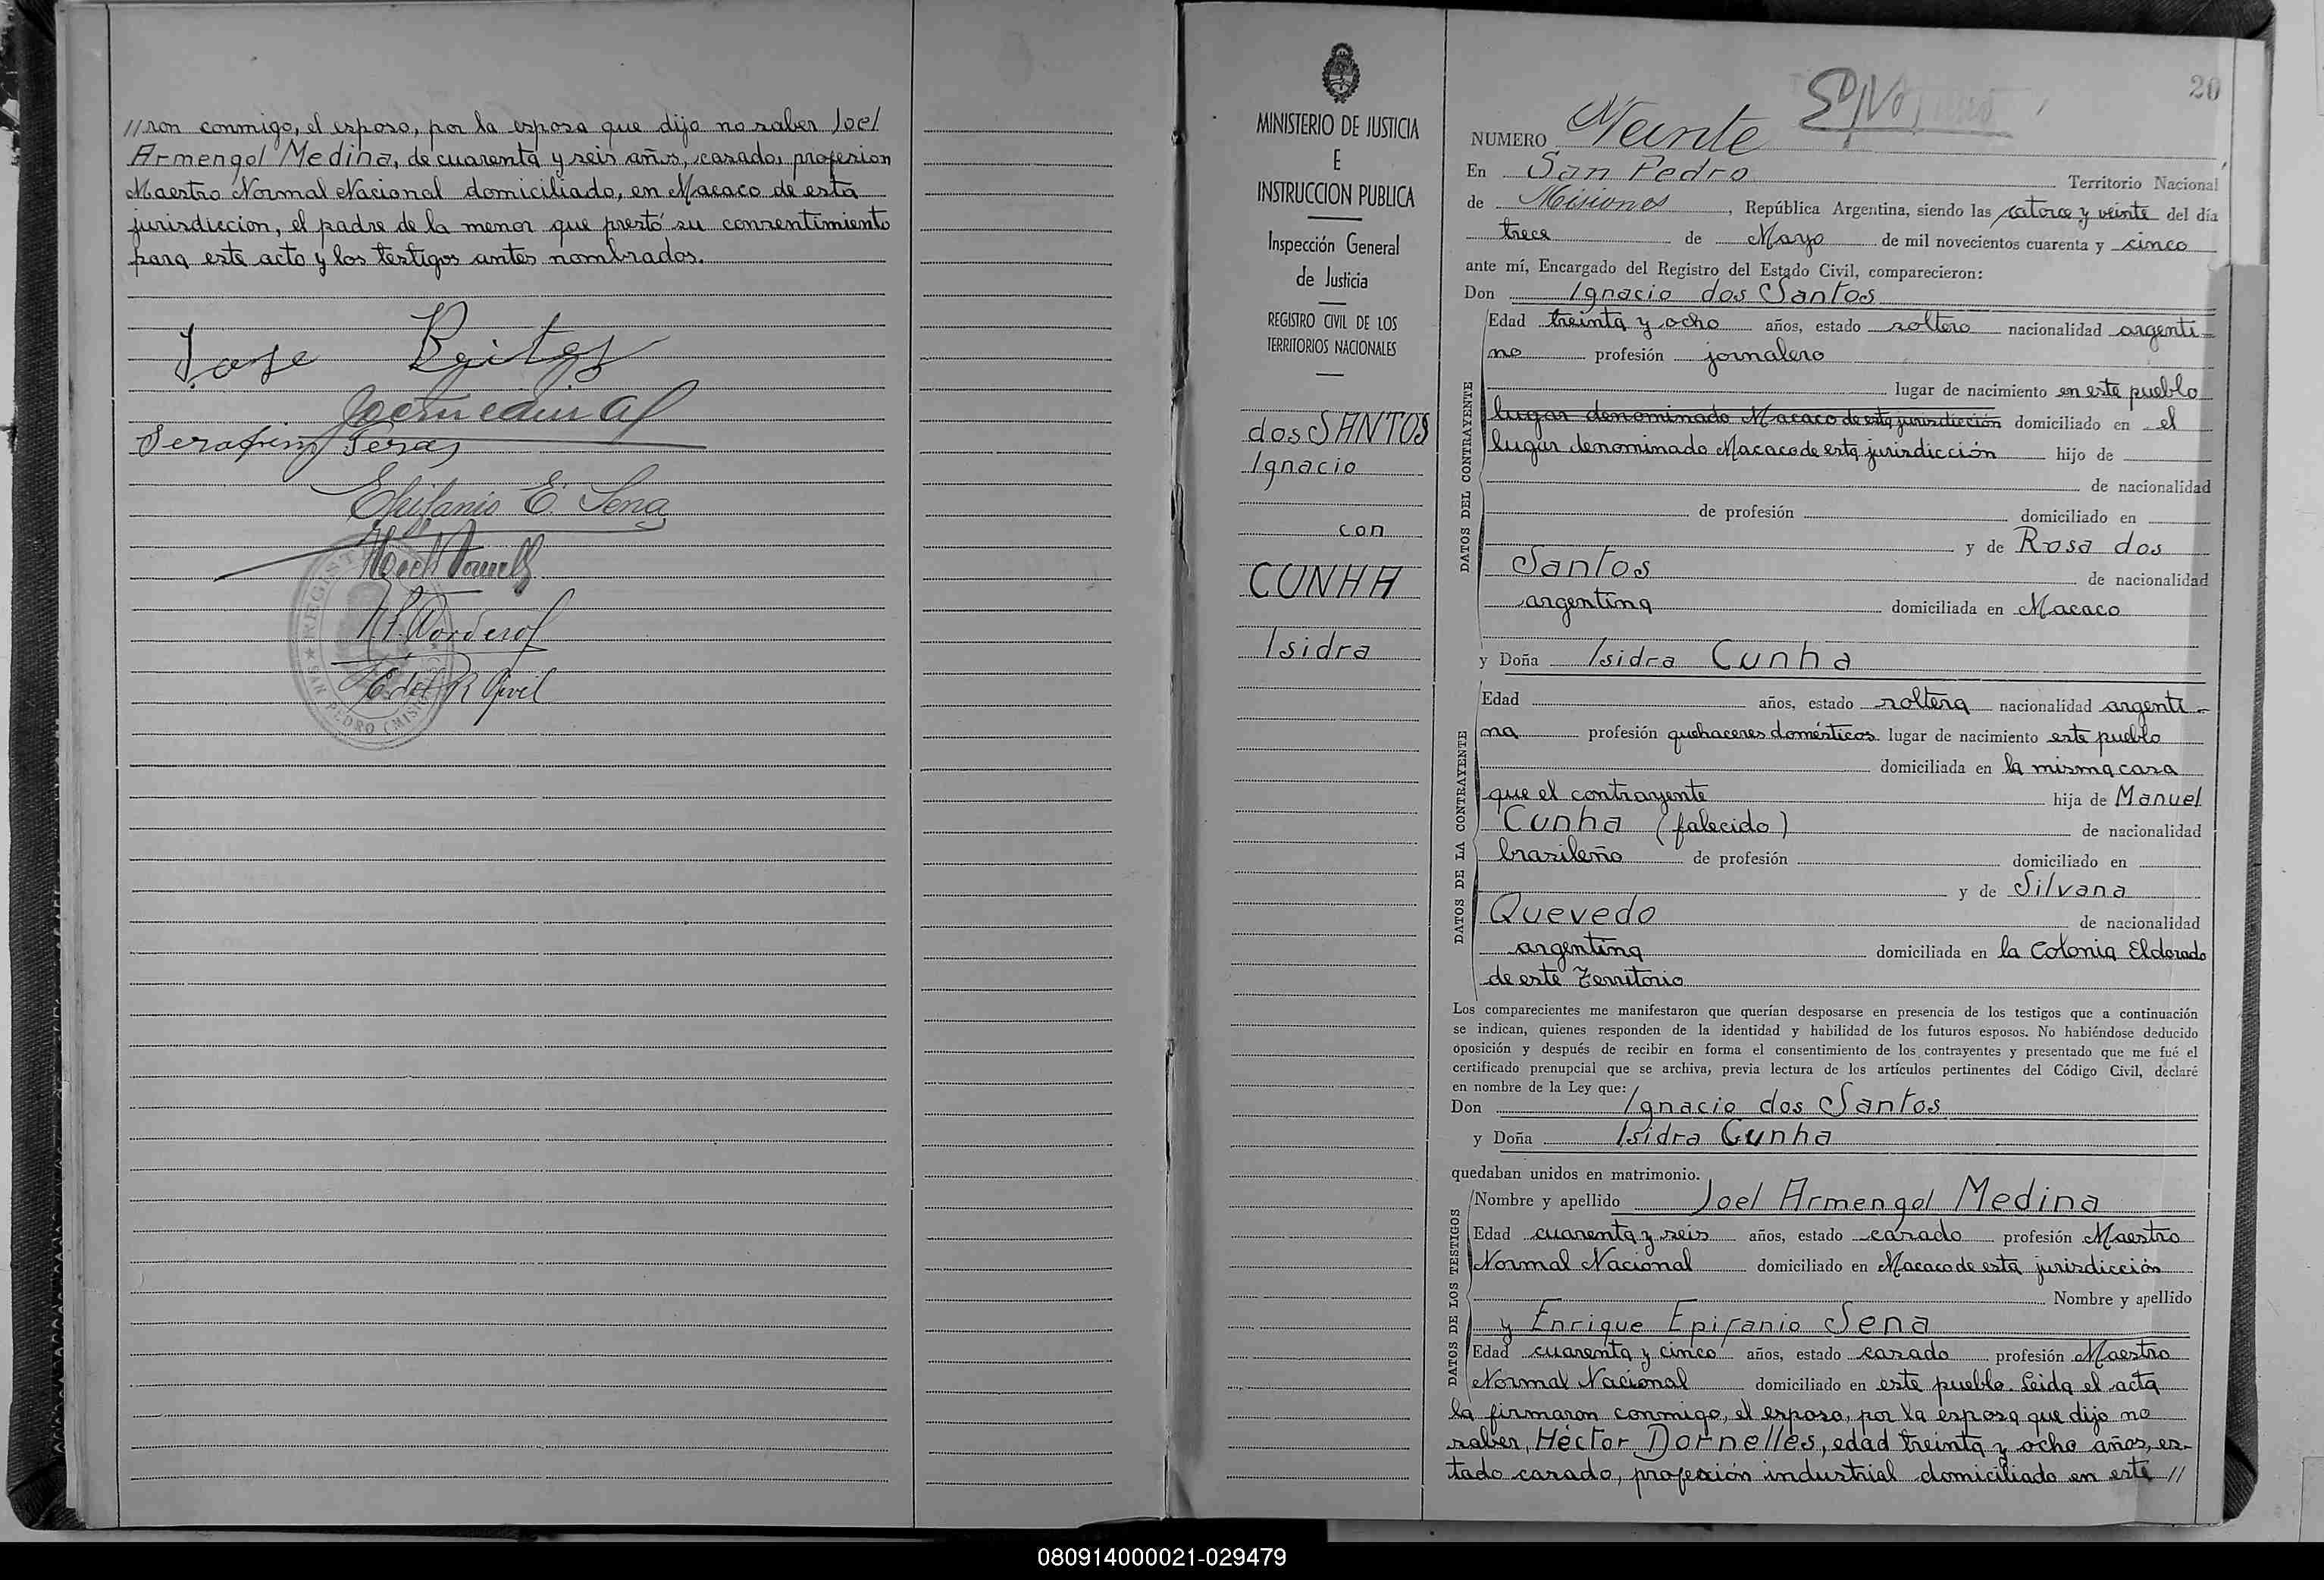 //ron conmigo, el esposo, por la esposa que dijo no saber Joel
Armengol Medina, de cuarenta y seis años, casado, profesion
Maestro Normal Nacional domiciliado, en Macaco de esta
jurisdiccion, el padre de la menor que prestó su consentimiento
para este acto y los testigos antes nombrados.
Jose
Serafin
Epifanio E. Sena
E. del R Civil
SAN PEDRO (MISIO
20
MINISTERIO DE JUSTICIA
E
INSTRUCCION PUBLICA
Inspección General
de Justicia
REGISTRO CIVIL DE LOS
TERRITORIOS NACIONALES
dos SANTOS
Ignacio
con
CUNHA
Isidra
NUMERO Veinte
En San Pedro Territorio Nacional
de Misiones, República Argentina, siendo las catorce y veinte del día
trece de Mayo de mil novecientos cuarenta y cinco
ante mí, Encargado del Registro del Estado Civil, comparecieron:
Don Ignacio dos Santos
DATOS DEL CONTRAYENTE
Edad treinta y ocho años, estado soltero nacionalidad argenti-
no profesión jornalero
lugar de nacimiento en este pueblo
lugar denominado Macaco de esta jurisdicción domiciliado en el
lugar denominado Macaco de esta jurisdicción hijo de
de nacionalidad
de profesión domiciliado en
y de Rosa dos
Santos de nacionalidad
argentina domiciliada en Macaco
y Doña Isidra Cunha
DATOS DE LA CONTRAYENTE
Edad años, estado soltera nacionalidad argenti-
na profesión quehaceres domésticos lugar de nacimiento este pueblo
domiciliada en la misma casa
que el contrayente hija de Manuel
Cunha (falecido) de nacionalidad
brasileño de profesión domiciliado en
y de Silvana
Quevedo de nacionalidad
argentina domiciliada en la Colonia Eldorado
de este Territorio
Los comparecientes me manifestaron que querían desposarse en presencia de los testigos que a continuación
se indican, quienes responden de la identidad y habilidad de los futuros esposos. No habiéndose deducido
oposición y después de recibir en forma el consentimiento de los contrayentes y presentado que me fué el
certificado prenupcial que se archiva, previa lectura de los artículos pertinentes del Código Civil, declaré
en nombre de la Ley que:
Don Ignacio dos Santos
y Doña Isidra Cunha
quedaban unidos en matrimonio.
DATOS DE LOS TESTIGOS
Nombre y apellido Joel Armengol Medina
Edad cuarenta y seis años, estado casado profesión Maestro
Normal Nacional domiciliado en Macaco de esta jurisdicción
Nombre y apellido
y Enrique Epifanio Sena
Edad cuarenta y cinco años, estado casado profesión Maestro
Normal Nacional domiciliado en este pueblo. Leida el acta
la firmaron conmigo, el esposo, por la esposa que dijo no
saber, Héctor Dornelles, edad treinta y ocho años, es-
tado casado, profesión industrial domiciliado en este //
080914000021-029479